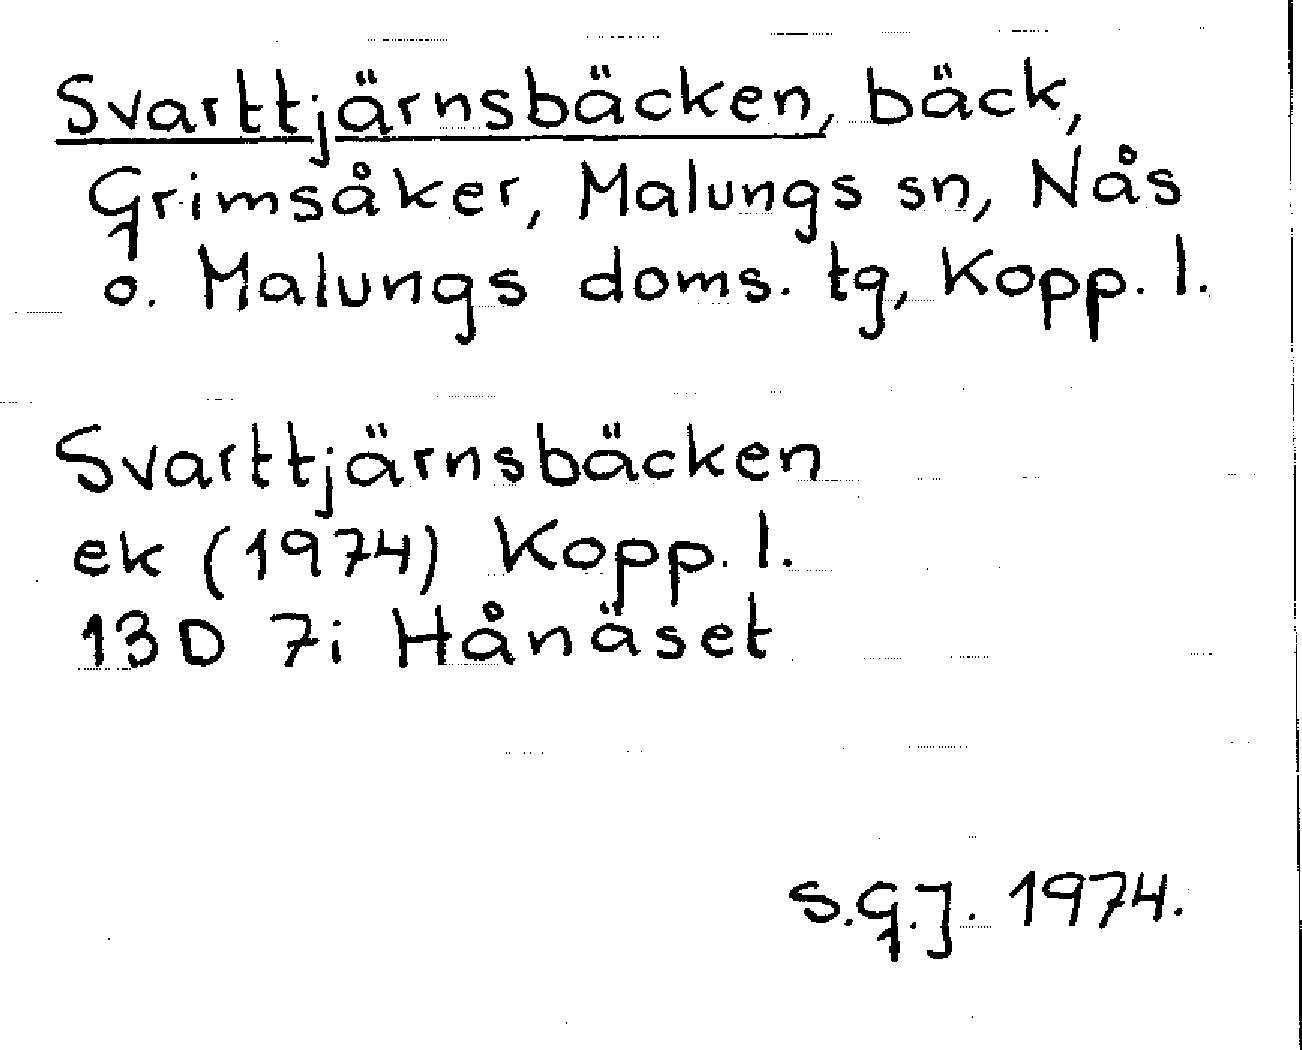 Svarttjärnsbäcken, bäck,
Grimsåker, Malungs sn, Nås
o. Malungs doms. tg, Kopp. l.
Svarttjärnsbäcken
ek (1974) Kopp. l.
13 D 7i Hånäset
S.G.J. 1974.